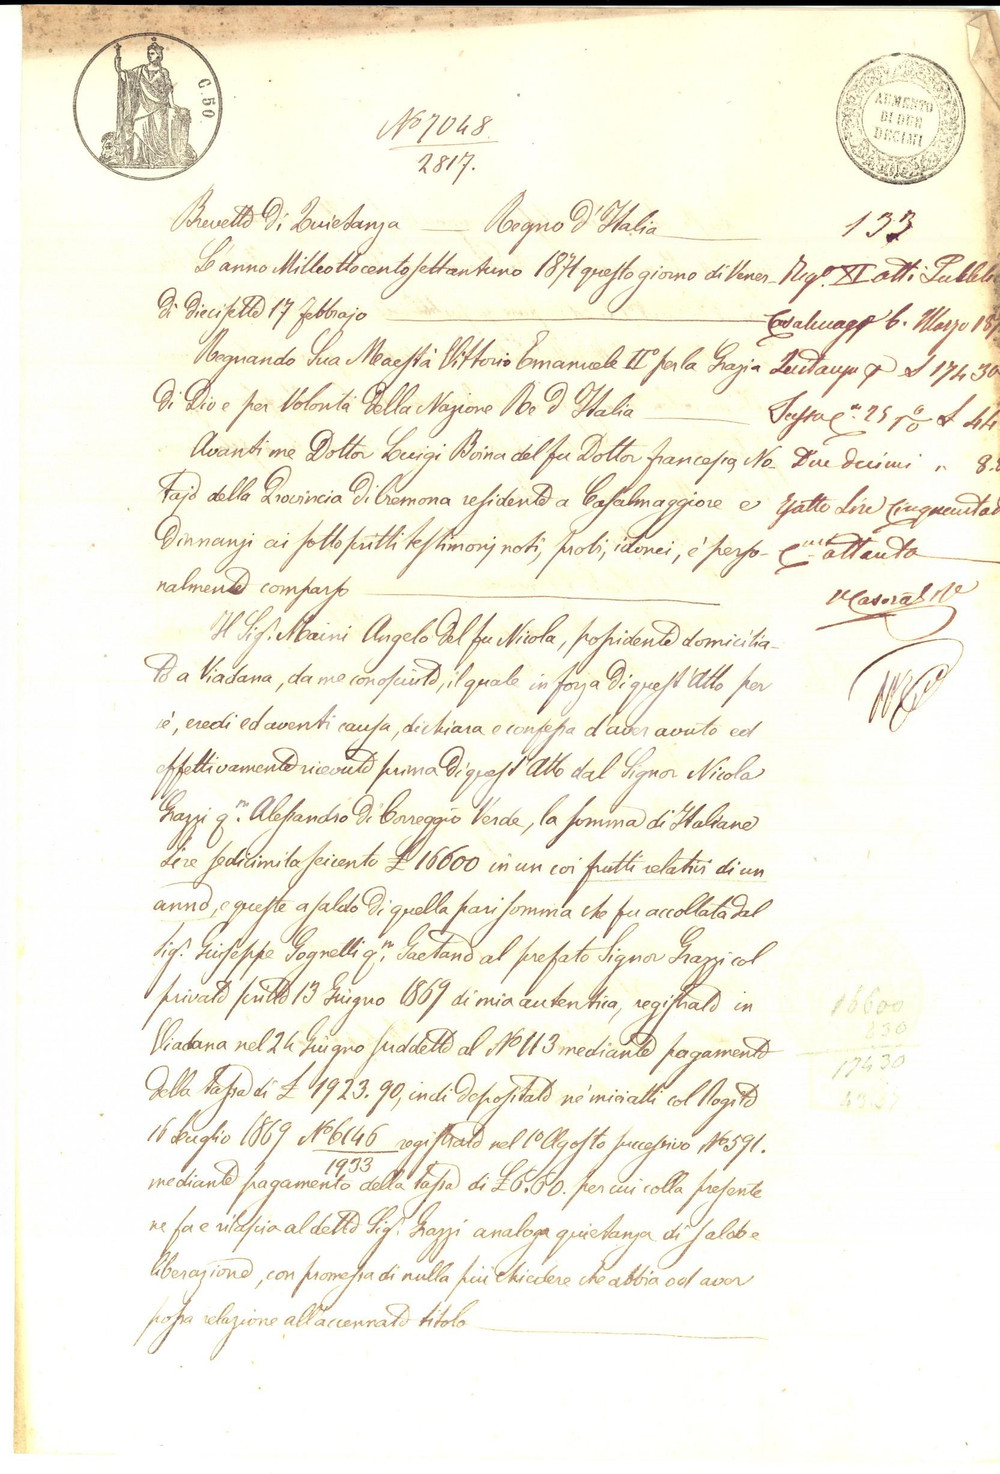 C. 50.
AUMENTO
DI DUE
DECIMI
No 7048.
2817.
Brevetto di Quietanza — Regno d'Italia
133
L'anno Milleottocentosettantuno 1871 questo giorno di Vener-
dì diecisette 17 febbrajo
Regnando Sua Maestà Vittorio Emanuele IIo per la Grazia
di Dio e per Volontà della Nazione Re d'Italia
Avanti me Dottor Luigi Boina del fu Dottor Francesco, No-
tajo della Provincia di Cremona residente a Casalmaggiore e
dinnanzi ai sottoscritti testimonj noti, probi, idonei, è perso-
nalmente comparso
Il Sigr. Maini Angelo del fu Nicola, possidente domicilia-
to a Viadana, da me conosciuto, il quale in forza di quest'Atto per
sè, eredi ed aventi causa, dichiara e confessa d'aver avuto ed
effettivamente ricevuto prima di quest'Atto dal Signor Nicola
Grazzi qm. Alessandro di Correggio Verde, la somma di Italiane
Lire sedicimilaseicento £ 16600 in un coi frutti relativi di un
anno, e queste a saldo di quella pari somma che fu accollata dal
Sigr. Giuseppe Gognelli qm. Gaetano al prefato Signor Grazzi col
privato scritto 13 Giugno 1869 di mia autentica, registrato in
Viadana nel 24 Giugno suddetto al No 113 mediante pagamento
della tassa di £ 1923.90, indi depositato ne' miei atti col Rogito
16 Luglio 1869 No 6146 registrato nel 1o Agosto successivo No 591.
1933
mediante pagamento della tassa di £ 6.60. per cui colla presente
ne fa e rilascia al detto Sigr. Grazzi analoga quietanza di saldo e
liberazione, con promessa di nulla più chiedere che abbia od aver
possa relazione all'accennato titolo
Regº. XI atti Pubblici
Casalmagge 6. Marzo 187
Quitanza £ 17430
Tassa 25 £ 44
Due decimi " 8.
Esatto Lire Cinquantadue
Cmi ottanta
16600
830
17430